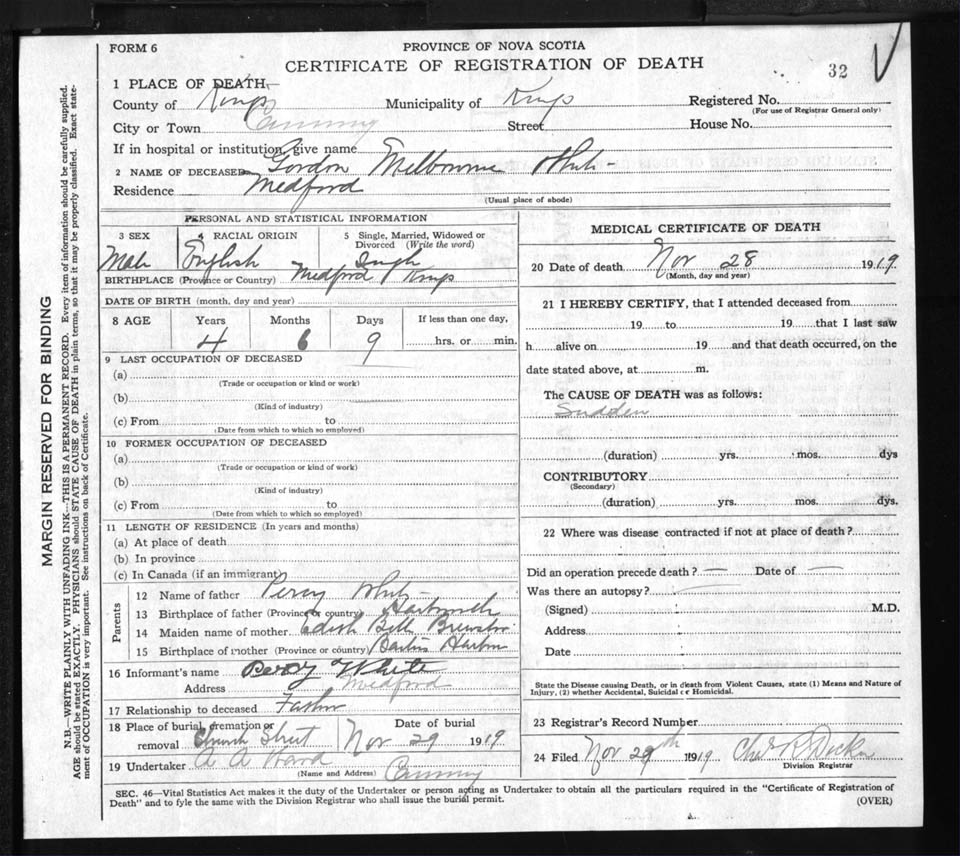 FORM 6
PROVINCE OF NOVA SCOTIA
CERTIFICATE OF REGISTRATION OF DEATH
32
1 PLACE OF DEATH
County of Kings Municipality of Kings Registered No.
(For use of Registrar General only)
City or Town Canning Street House No.
If in hospital or institution, give name
2 NAME OF DECEASED Gordon Melbourne White
Residence Medford
(Usual place of abode)
MARGIN RESERVED FOR BINDING
N.B.—WRITE PLAINLY WITH UNFADING INK—THIS IS A PERMANENT RECORD. Every item of information should be carefully supplied.
AGE should be stated EXACTLY. PHYSICIANS should STATE CAUSE OF DEATH in plain terms, so that it may be properly classified. Exact state-
ment of OCCUPATION is very important. See instructions on back of Certificate.
PERSONAL AND STATISTICAL INFORMATION
3 SEX 4 RACIAL ORIGIN 5 Single, Married, Widowed or
Divorced (Write the word)
Male English Single
BIRTHPLACE (Province or Country) Medford Kings
DATE OF BIRTH (month, day and year)
8 AGE Years Months Days If less than one day,
4 6 9 hrs. or min.
9 LAST OCCUPATION OF DECEASED
(a)
(Trade or occupation or kind or work)
(b)
(Kind of industry)
(c) From to
(Date from which to which so employed)
10 FORMER OCCUPATION OF DECEASED
(a)
(Trade or occupation or kind of work)
(b)
(Kind of industry)
(c) From to
(Date from which to which so employed)
11 LENGTH OF RESIDENCE (In years and months)
(a) At place of death
(b) In province
(c) In Canada (if an immigrant)
Parents
12 Name of father Percy White
13 Birthplace of father (Province or country)
14 Maiden name of mother Edith Bell Brewster
15 Birthplace of mother (Province or country) Harbor
16 Informant's name Percy White
Address Medford
17 Relationship to deceased Father
18 Place of burial, cremation or Date of burial
removal Church Street Nov 29 1919
19 Undertaker A A Ward
(Name and Address) Canning
MEDICAL CERTIFICATE OF DEATH
20 Date of death Nov 28 1919
(Month, day and year)
21 I HEREBY CERTIFY, that I attended deceased from
19 to 19 that I last saw
h alive on 19 and that death occurred, on the
date stated above, at m.
The CAUSE OF DEATH was as follows:
Sudden
(duration) yrs. mos. dys
CONTRIBUTORY
(Secondary)
(duration) yrs. mos. dys.
22 Where was disease contracted if not at place of death?
Did an operation precede death? — Date of —
Was there an autopsy?
(Signed) M.D.
Address
Date
State the Disease causing Death, or in death from Violent Causes, state (1) Means and Nature of
Injury, (2) whether Accidental, Suicidal or Homicidal.
23 Registrar's Record Number
24 Filed Nov 29th 1919 Chas R
Division Registrar
SEC. 46—Vital Statistics Act makes it the duty of the Undertaker or person acting as Undertaker to obtain all the particulars required in the "Certificate of Registration of
Death" and to fyle the same with the Division Registrar who shall issue the burial permit.
(OVER)